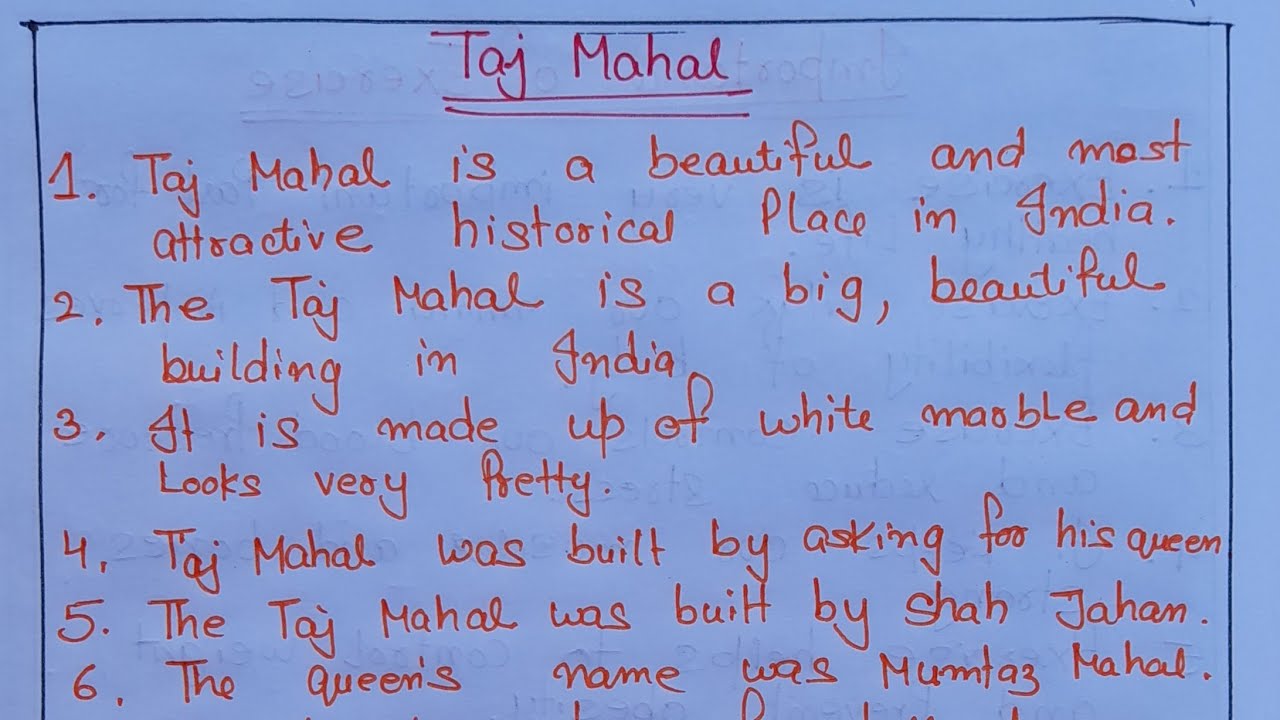 Taj Mahal
1. Taj Mahal is a beautiful and most
attractive historical Place in India.
2. The Taj Mahal is a big, beautiful
building in India.
3. It is made up of white marble and
Looks very Pretty.
4. Taj Mahal was built by asking for his queen
5. The Taj Mahal was built by Shah Jahan.
6. The queen's name was Mumtaz Mahal.